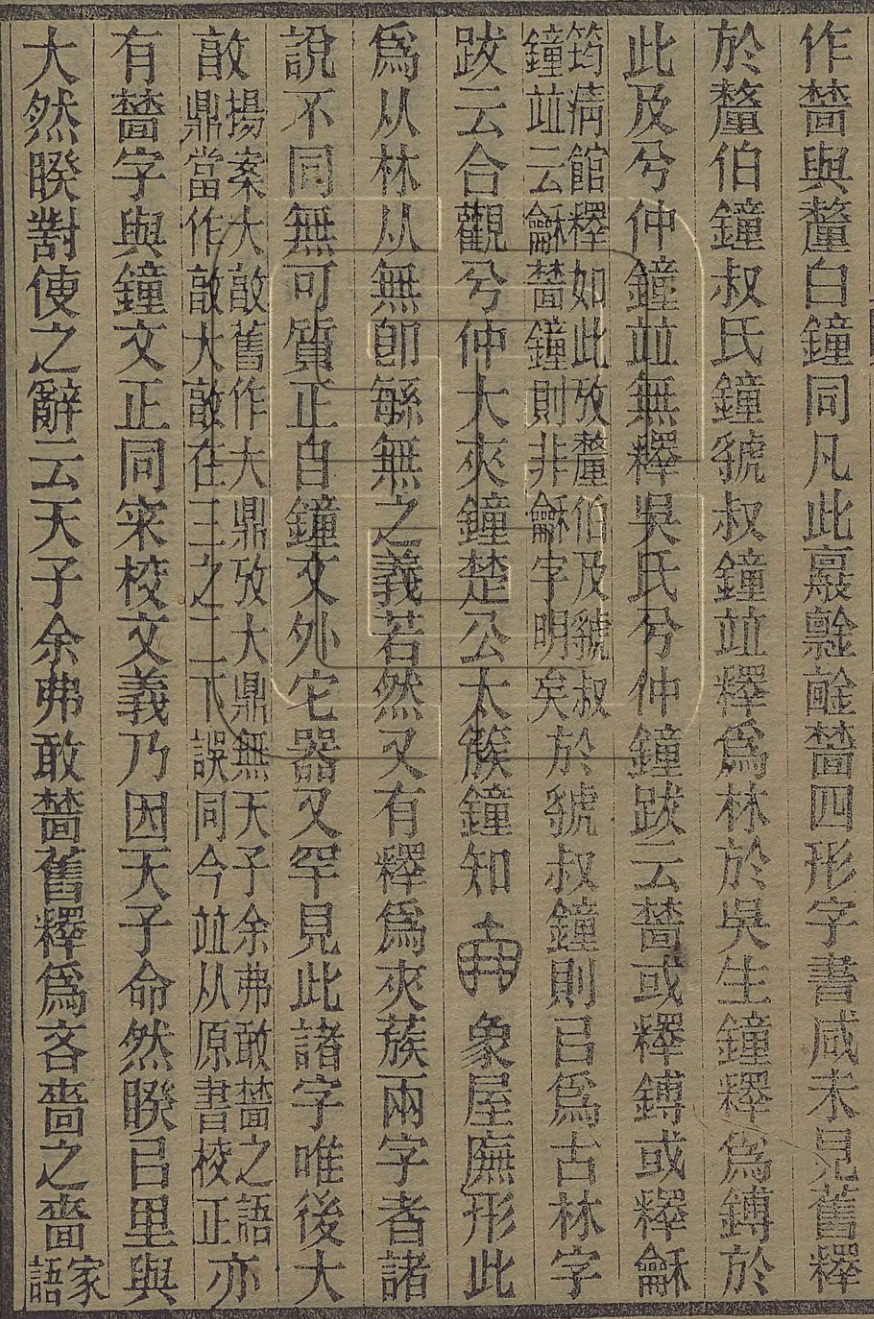 作䔲與釐白鐘同凡此䔲四形字書咸未見舊釋
於釐伯鐘叔氏鐘虢叔鐘竝釋爲林於吳生鐘釋爲鎛於
此及兮仲鐘竝無釋吳氏兮仲鐘跋云䔲或釋鎛或釋龢
筠淸館釋如此攷釐伯及虢叔
鐘竝云龢䔲鐘則非龢字明矣
於虢叔鐘則㠯爲古林字
跋云合觀兮仲大夾鐘楚公大蔟鐘知象屋廡形此
爲从林从無卽緐無之義若然又有釋爲夾蔟兩字者諸
說不同無可質正自鐘文外它器又罕見此諸字唯後大
敔
揚案大敔舊作大鼎攷大鼎無天子余弗敢䔲之語
鼎當作敔大敔在三之二下誤同今竝从原書校正
亦
有䔲字與鐘文正同寀校文義乃因天子命然睽㠯里與
大然睽對使之辭云天子余弗敢䔲舊釋爲吝嗇之嗇
家
語